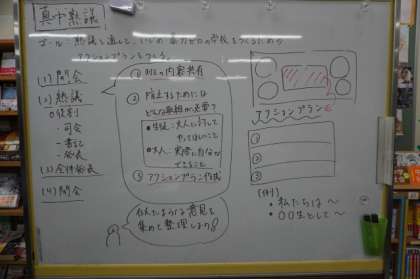 真中熟議
ゴール：熟議を通して、いじめ・暴力ゼロの学校をつくるための
アクションプランをつくる。
(1) 開会
(2) 熟議
◎役割
・司会
・書記
・発表
(3) 全体発表
(4) 閉会
① の内容共有
② 防止するためには
どんな取組が必要？
●生徒：大人に対して
やってほしいこと
●大人：実際に自分が
できること
③ アクションプラン作成
似たような意見を
集めて整理しよう！
アクションプラン
①
②
③
(例)
・私たちは～
・〇〇生として～